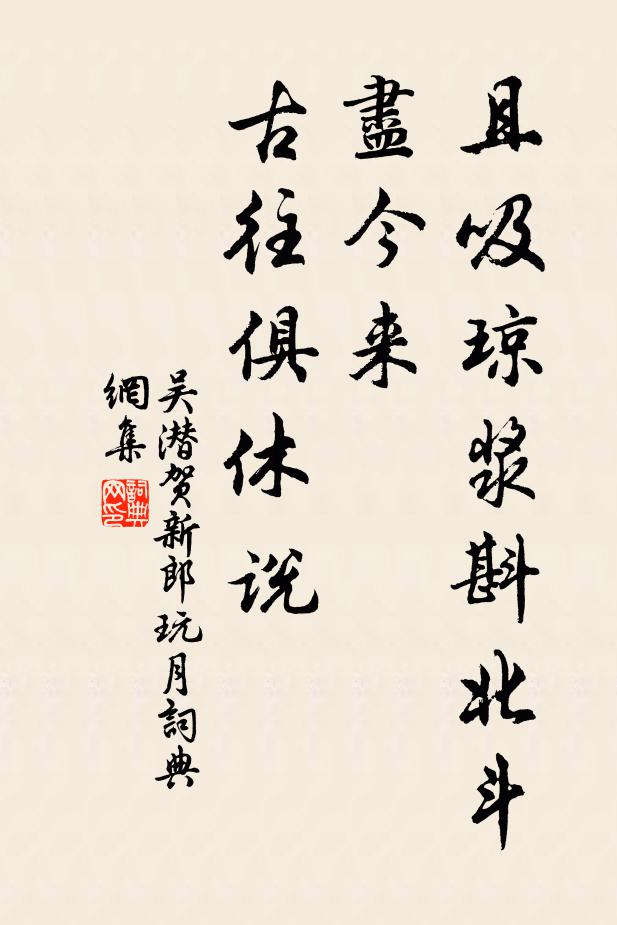 且吸琼浆斟北斗
盡今来
古往俱休说
吴潜贺新郎玩月詞典
網集
詞典
网印